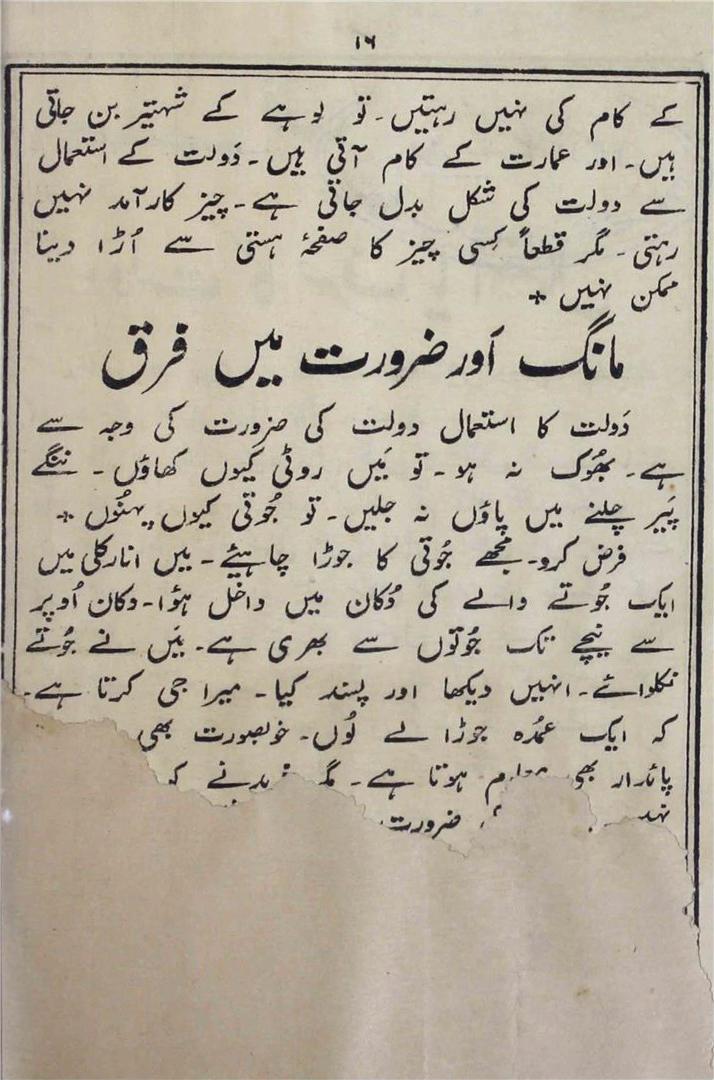 ۱۶
کے کام کی نہیں رہتیں۔ تو لوہے کے شہتیر بن جاتی
ہیں۔ اور عمارت کے کام آتی ہیں۔ دَولت کے استعمال
سے دولت کی شکل بدل جاتی ہے۔ چیز کارآمد نہیں
رہتی۔ مگر قطعاً کِسی چیز کا صفحۂ ہستی سے اُڑا دینا
ممکن نہیں +
مانگ اَور ضرورت میں فرق
دَولت کا استعمال دولت کی ضرورت کی وجہ سے
ہے۔ بھُوک نہ ہو۔ تو مَیں روٹی کیوں کھاؤں۔ ننگے
پَیر چلنے میں پاؤں نہ جلیں۔ تو جُوتی کیوں پہنُوں +
فرض کرو۔ مجھے جُوتی کا جوڑا چاہیئے۔ میں انارکلی میں
ایک جُوتے والے کی دُکان میں داخل ہؤا۔ دکان اُوپر
سے نیچے تک جُوتوں سے بھری ہے۔ مَیں نے جُوتے
نکلوائے۔ انہیں دیکھا اور پسند کیا۔ میرا جی کرتا ہے۔
کہ ایک عمُدہ جوڑا لے لُوں۔ خوبصورت بھی
پائدار بھی معلوم ہوتا ہے۔
ضرورت